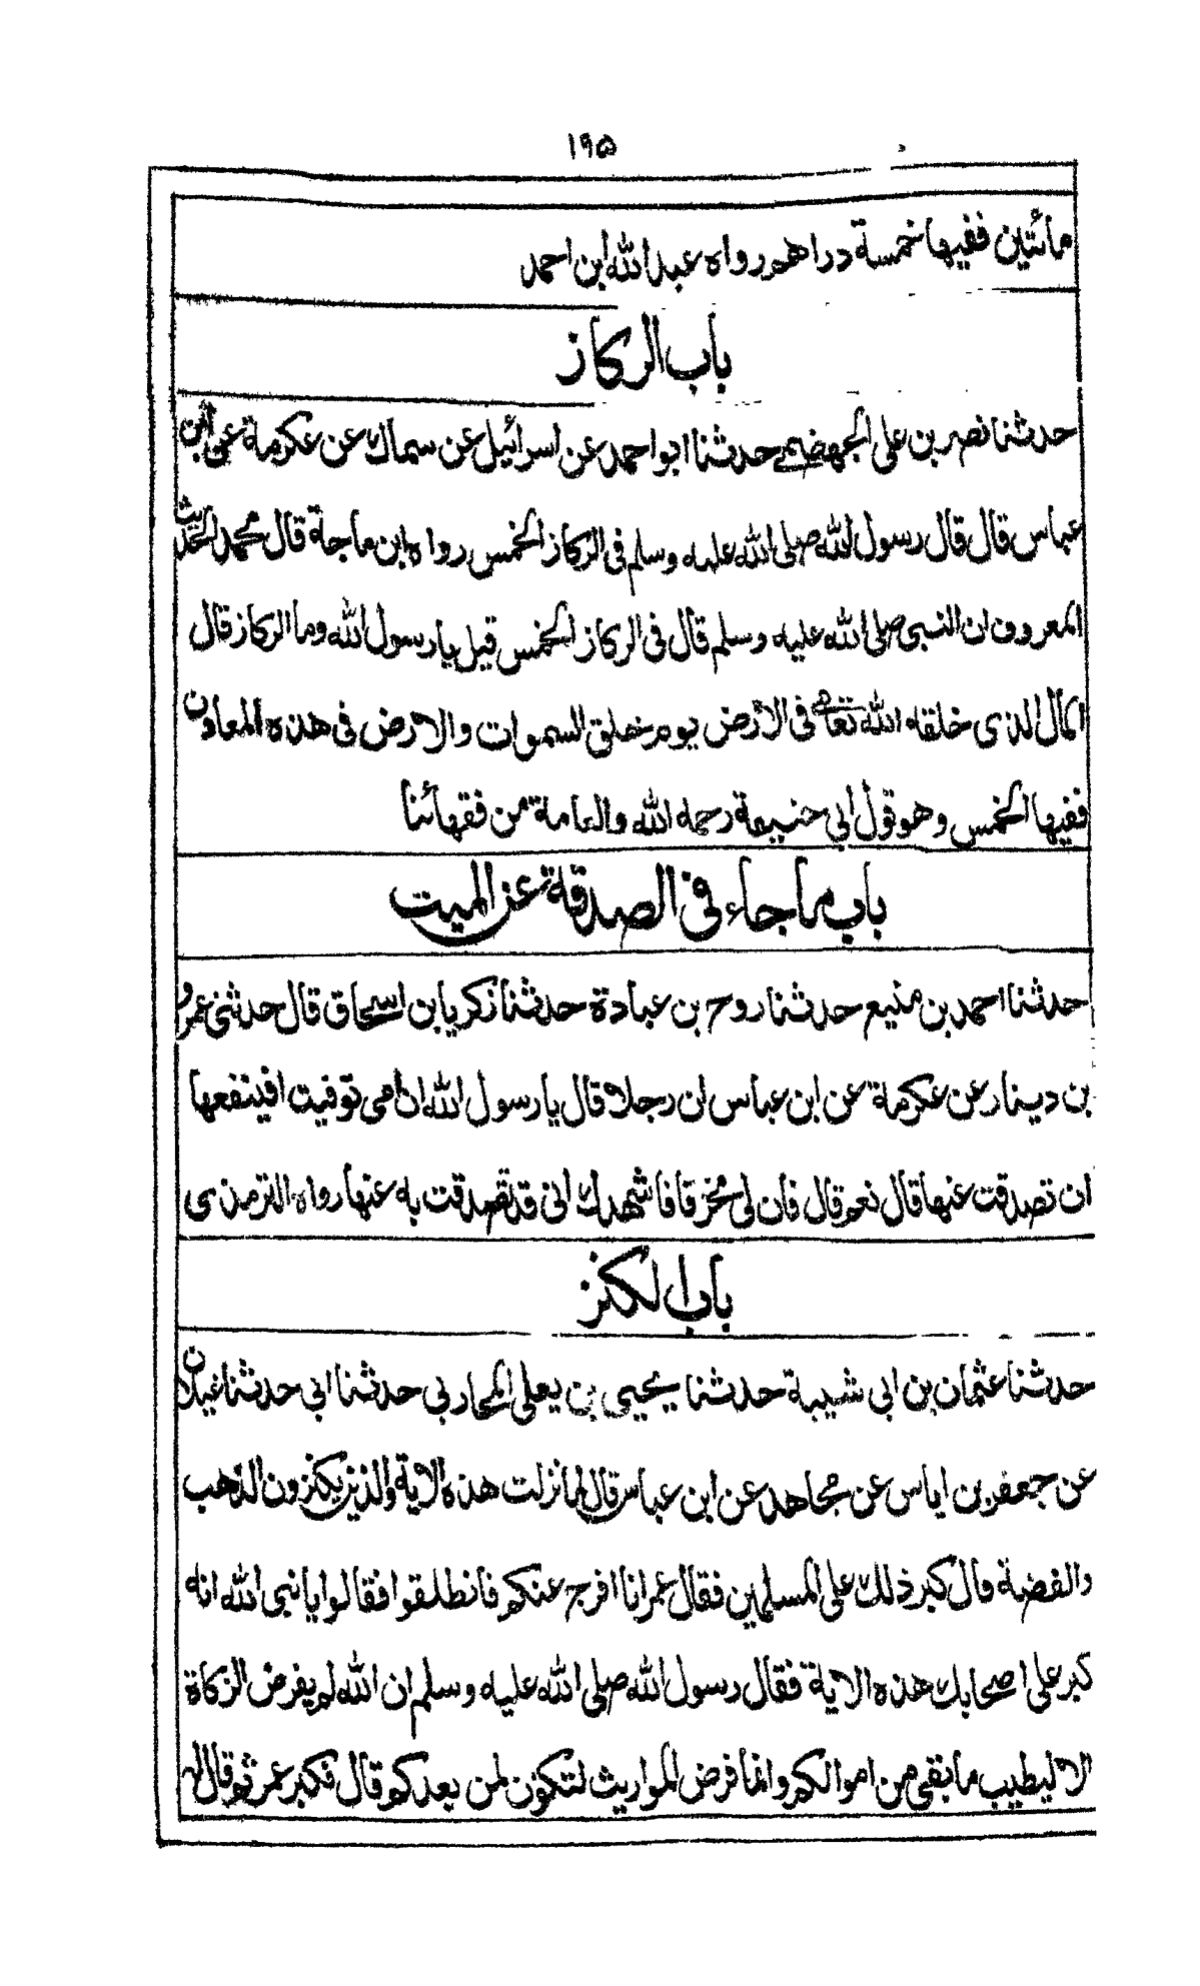 ١٩٥
مائتين ففيها خمسة دراهم رواه عبد الله ابن احمد
باب الركاز
حدثنا نصر بن على الجهضمي حدثنا ابو احمد عن اسرائيل عن سماك عن عكرمة عن ابن
عباس قال قال رسول الله صلى الله عليه وسلم في الركاز الخمس رواه ابن ماجة قال محمد الحديث
المعروف ان النبي صلى الله عليه وسلم قال في الركاز الخمس قيل يا رسول الله وما الركاز قال
المال الذي خلقه الله تعالى في الأرض يوم خلق السموات والارض في هذه المعادن
ففيها الخمس وهو قول أبي حنيفة رحمه الله والعامة من فقهائنا
باب ما جاء في الصدقة عن الميت
حدثنا احمد بن منيع حدثنا روح بن عبادة حدثنا زكريا بن اسحاق قال حدثني عمرو
بن دينار عن عكرمة عن ابن عباس ان رجلا قال يا رسول الله ان امي توفيت افينفعها
ان تصدقت عنها قال نعم قال فأن لي مخرفا فاشهدك اني قد تصدقت به عنها رواه الترمذي
باب الكنز
حدثنا عثمان بن ابي شيبة حدثنا يحيى بن يعلى المحاربي حدثنا ابي حدثنا غيلان
عن جعفر بن اياس عن مجاهد عن ابن عباس قال لما نزلت هذه الاية والذين يكنزون الذهب
والفضة قال كبر ذلك على المسلمين فقال عمر انا افرج عنكم فانطلقوا فقالوا يا نبي الله انه
كبر على اصحابك هذه الاية فقال رسول الله صلى الله عليه وسلم ان الله لم يفرض الزكاة
الا ليطيب ما بقي من اموالكم وانما فرض المواريث لتكون لمن بعدكم قال فكبر عمر ثم قال له